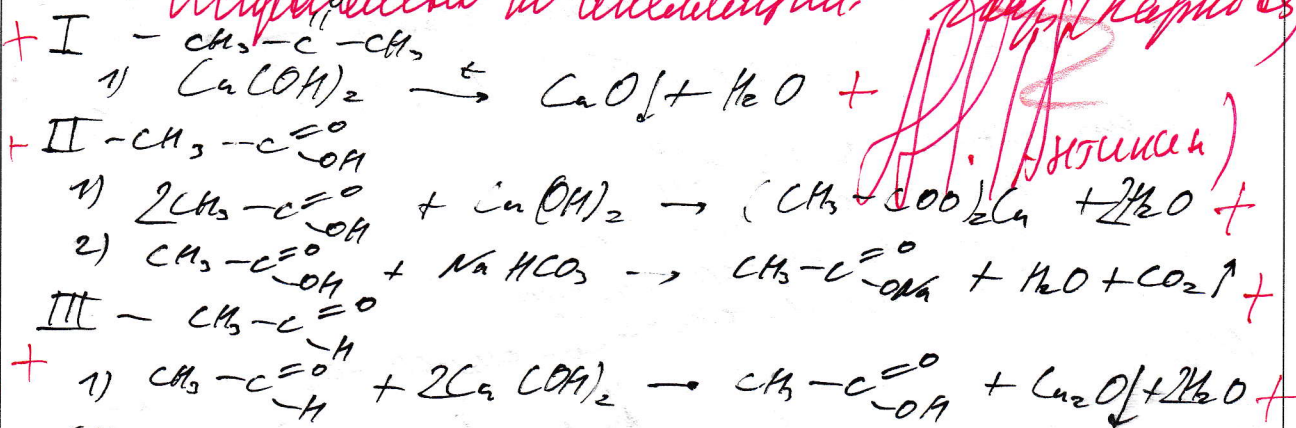 + I - CH₃-C-CH₃
1) Cu(OH)₂ →t CuO↓ + H₂O +
+ II - CH₃-C=O -OH
Антикин)
1) 2CH₃-C=O -OH + Cu(OH)₂ → (CH₃-COO)₂Cu + 2H₂O +
2) CH₃-C=O -OH + NaHCO₃ → CH₃-C=O -ONa + H₂O + CO₂↑ +
III - CH₃-C=O -H
+ 1) CH₃-C=O -H + 2Cu(OH)₂ → CH₃-C=O -OH + Cu₂O↓ + 2H₂O +